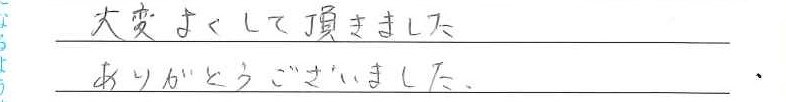 大変よくして頂きました
ありがとうございました、